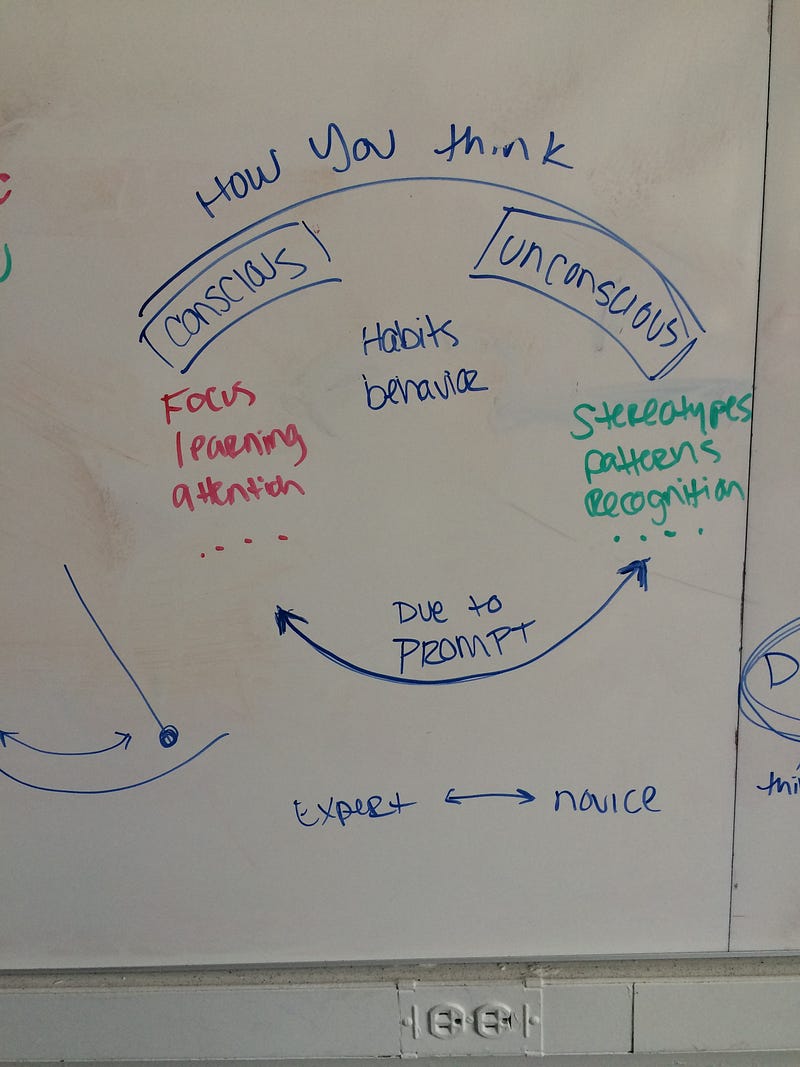 How You think
conscious
unconscious
Habits
behavior
Focus
learning
attention
....
Stereotypes
patterns
Recognition
....
Due to
PROMPT
Expert ↔ novice